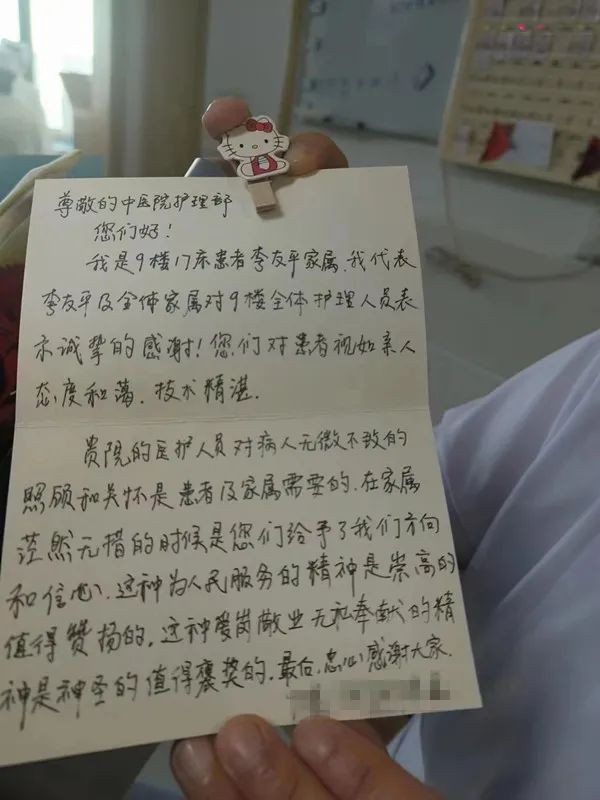 尊敬的中医院护理部
您们好！
我是9楼17床患者李友平家属，我代表
李友平及全体家属对9楼全体护理人员表
示诚挚的感谢！您们对患者视如亲人
态度和蔼，技术精湛．
贵院的医护人员对病人无微不致的
照顾和关怀是患者及家属需要的．在家属
茫然无措的时候是您们给予了我们方向
和信心．这种为人民服务的精神是崇高的
值得赞扬的．这种爱岗敬业无私奉献的精
神是神圣的值得褒奖的．最后，忠心感谢大家．